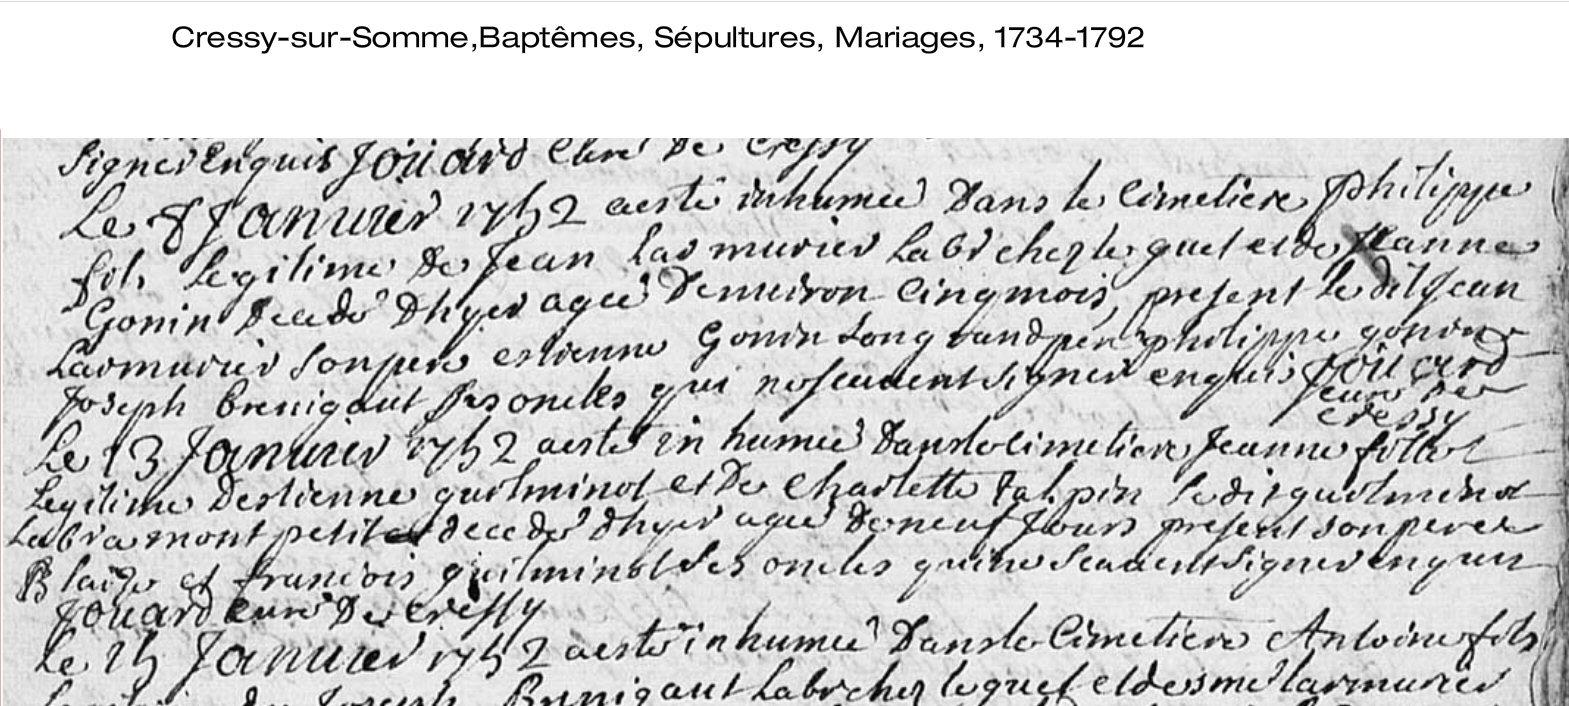 Cressy-sur-Somme,Baptêmes, Sépultures, Mariages, 1734-1792
signer Enquis Joüard Curé De Cressy
Le 8 Januier 1752 aesté inhumeé Dans le Cimetiere philippe
fils Legitime De Jean Larmurier Labr chez le guet et de Jeanne
Gonin Decedé Dhyer ageé Denuiron Cinq mois, present le dit Jean
Larmurier son pere estienne Gonin son grand pere philippe gonin
Joseph Brenigaut ses oncles qui nosceuuent signer enquis Joüard
Curé De
Cressy
Le 13 Januier 1752 aesté in humeé Dans le Cimetiere Jeanne fille
Legitime Destienne guilminot et De Charlette talpin le dit guilminot
Labr a mont petit decedé dhyer ageé De neuf Jours present son pere
Blaize et francois guilminot ses oncles qui ne sceauent signer enquis
Joüard Curé De Cressy
Le 15 Januier 1752 aesté in humeé Dans le Cimetiere Antoine fils
de Joseph Brenigaut Labr chez le guet et desmé larmurier